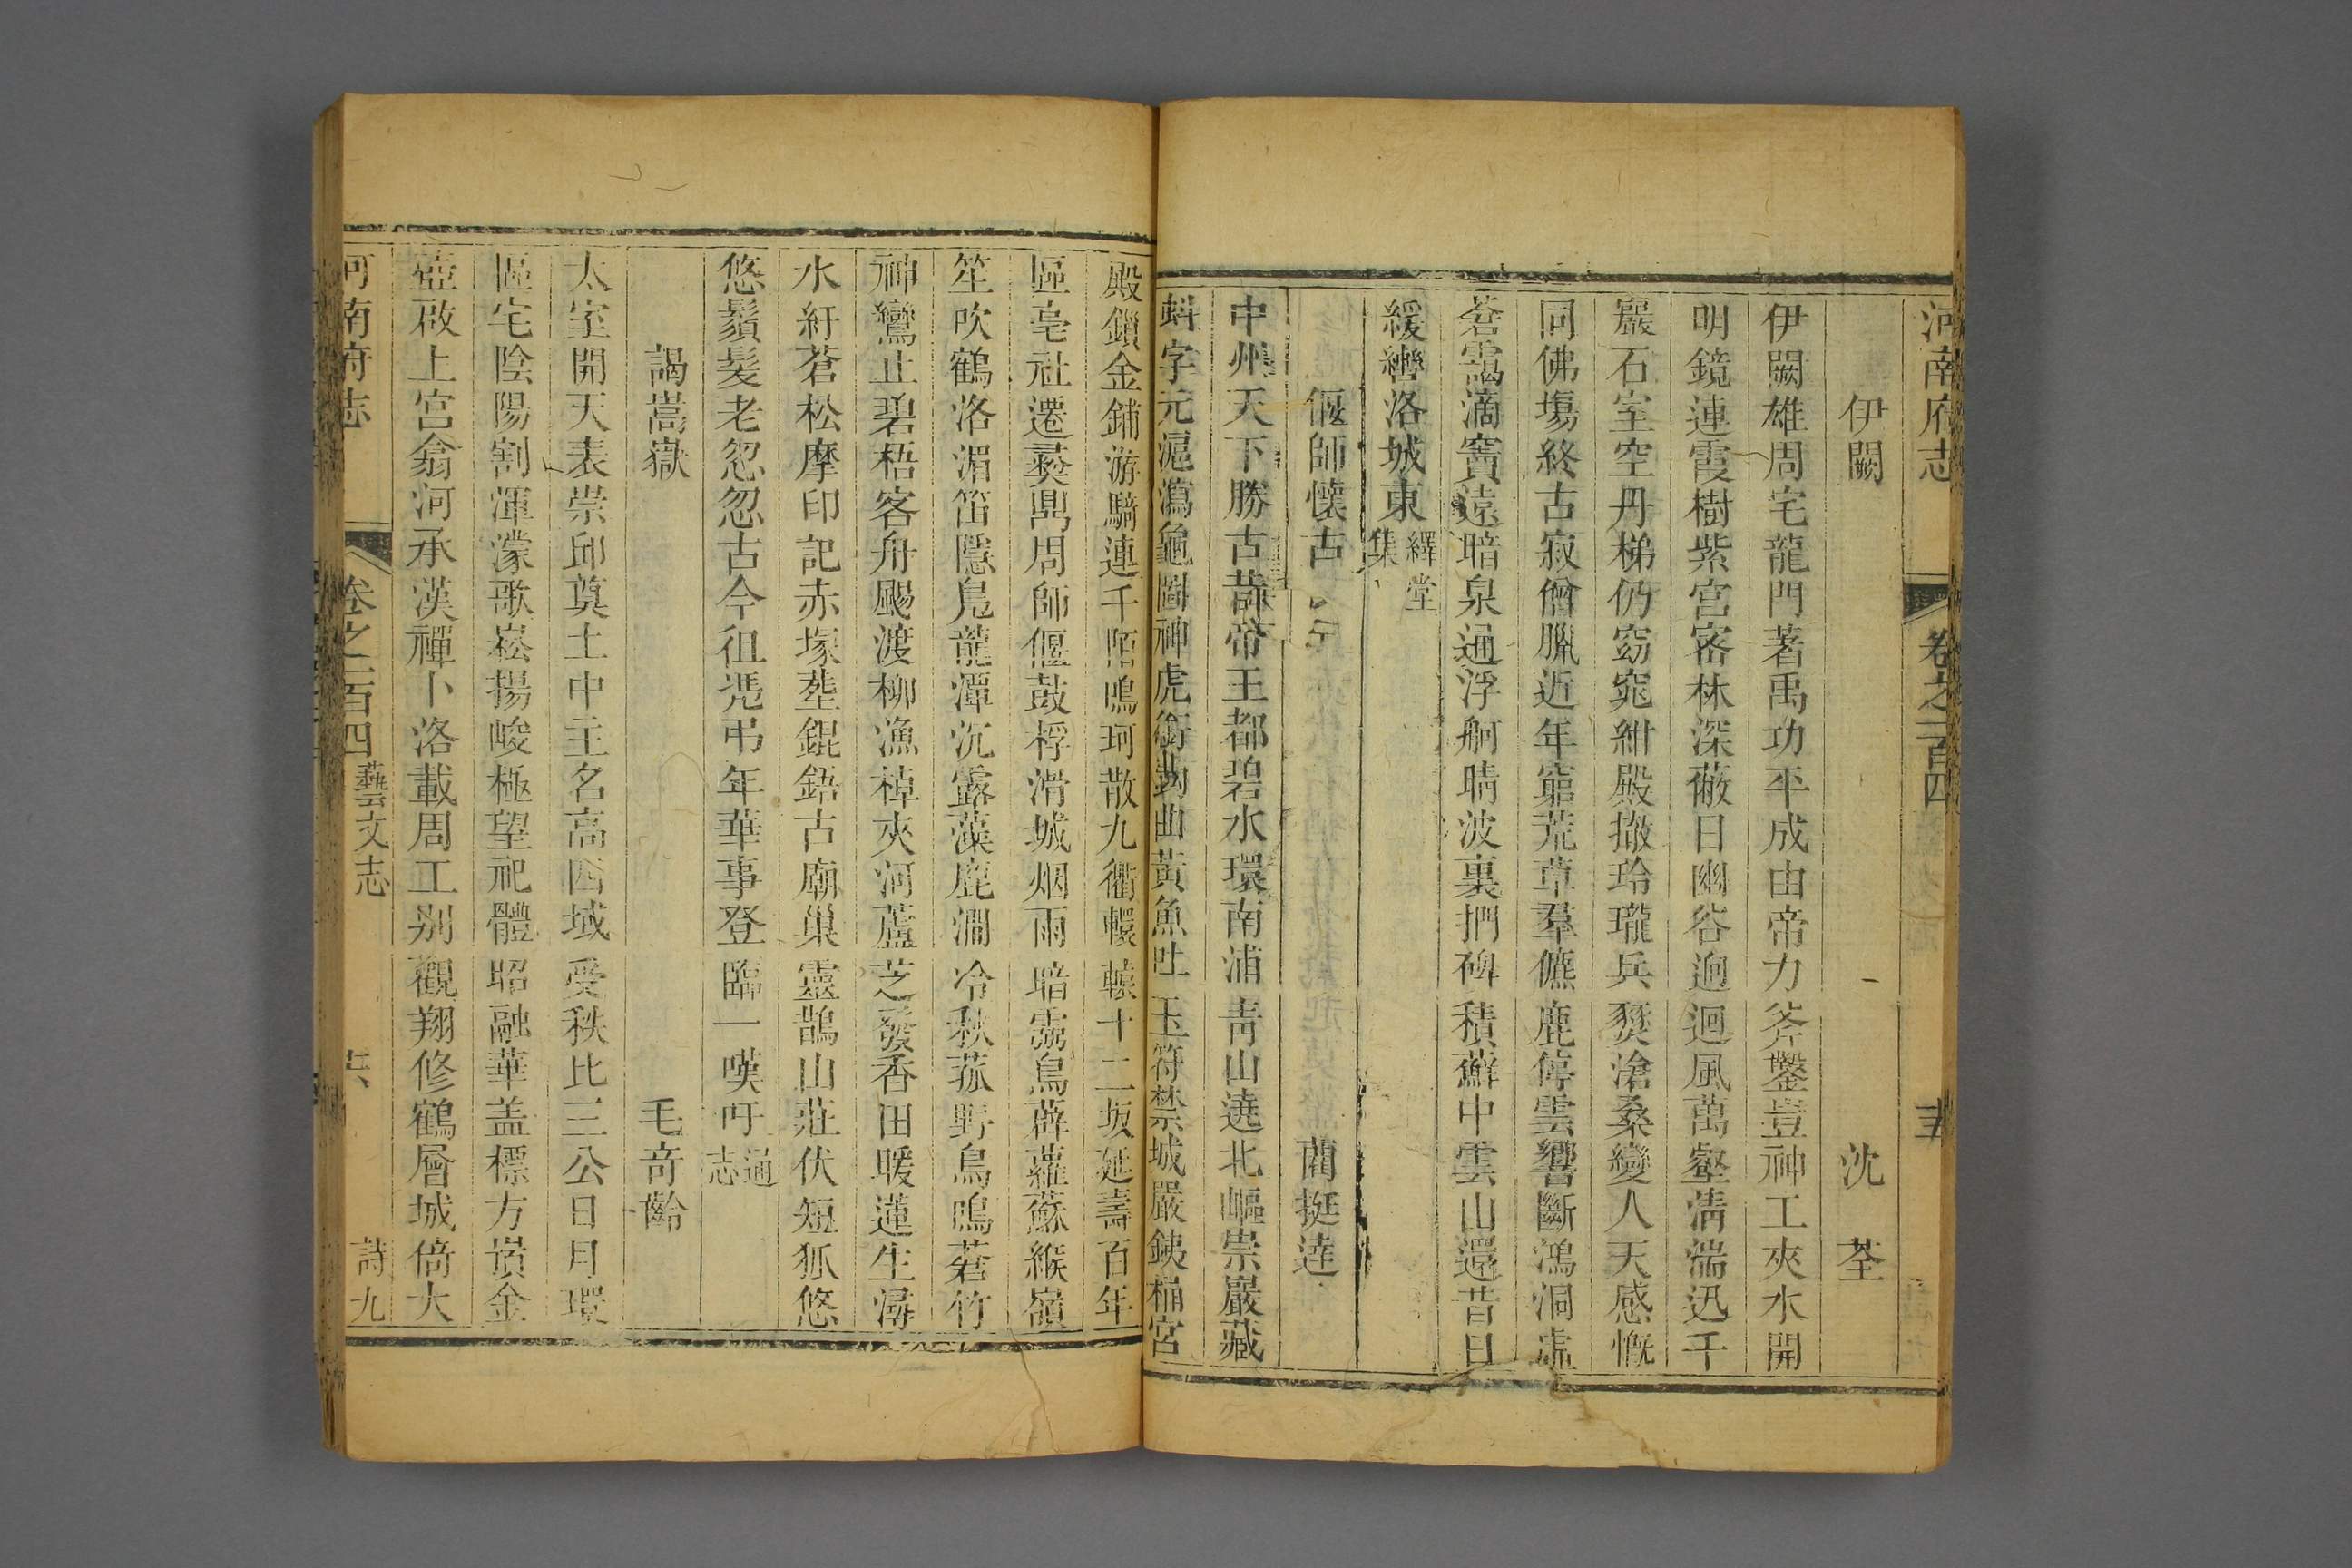 河南府志 卷之一百四
伊闕 沈荃
伊闕雄周宅龍門著禹功平成由帝力斧鑿豈神工夾水開
明鏡連霞樹紫宮密林深蔽日幽谷迥迴風萬壑淸湍迅千
巖石室空丹梯仍窈窕紺殿撤玲瓏兵燹滄桑變人天感慨
同佛塲終古寂僧臘近年窮荒草羣僬鹿停雲響斷鴻洞虛
蒼靄滴竇遠暗泉通浮舸晴波裏捫碑積蘚中雲山還昔日
緩轡洛城東繹堂集
偃師懷古 藺挺逵
中州天下勝古昔帝王都碧水環南浦靑山遶北嶇崇巖藏
蚪字元滬瀉龜圖神虎銜鉤曲黃魚吐玉符禁城嚴鐵桶宮
殿鎖金鋪游騎連千陌鳴珂散九衢轘轅十二坂延壽百年
區亳社遷彞鼎周師偃鼓桴滑城烟雨暗𡨴烏薜蘿蘇緱嶺
笙吹鶴洛湄笛隱鳧龍潭沉露藻鹿澗冷秋菰野鳥鳴蒼竹
神鸞止碧梧客舟颺渡柳漁棹夾河蘆芝發香田暖蓮生潯
水紆蒼松摩印記赤塚塟錕鋙古廟巢靈鵲山莊伏短狐悠
悠鬚髮老忽忽古今徂憑弔年華事登臨一嘆吁通志
謁嵩嶽 毛奇齡
太室開天表崇邱奠土中主名高四域受秩比三公日月環
區宅陰陽割渾濛歌崧揚峻極望祀體昭融華盖標方嵿金
壺啟上宮翕河承漢禪卜洛載周工别觀翔修鶴層城倚大
河南府志 卷之一百四 藝文志 詩九